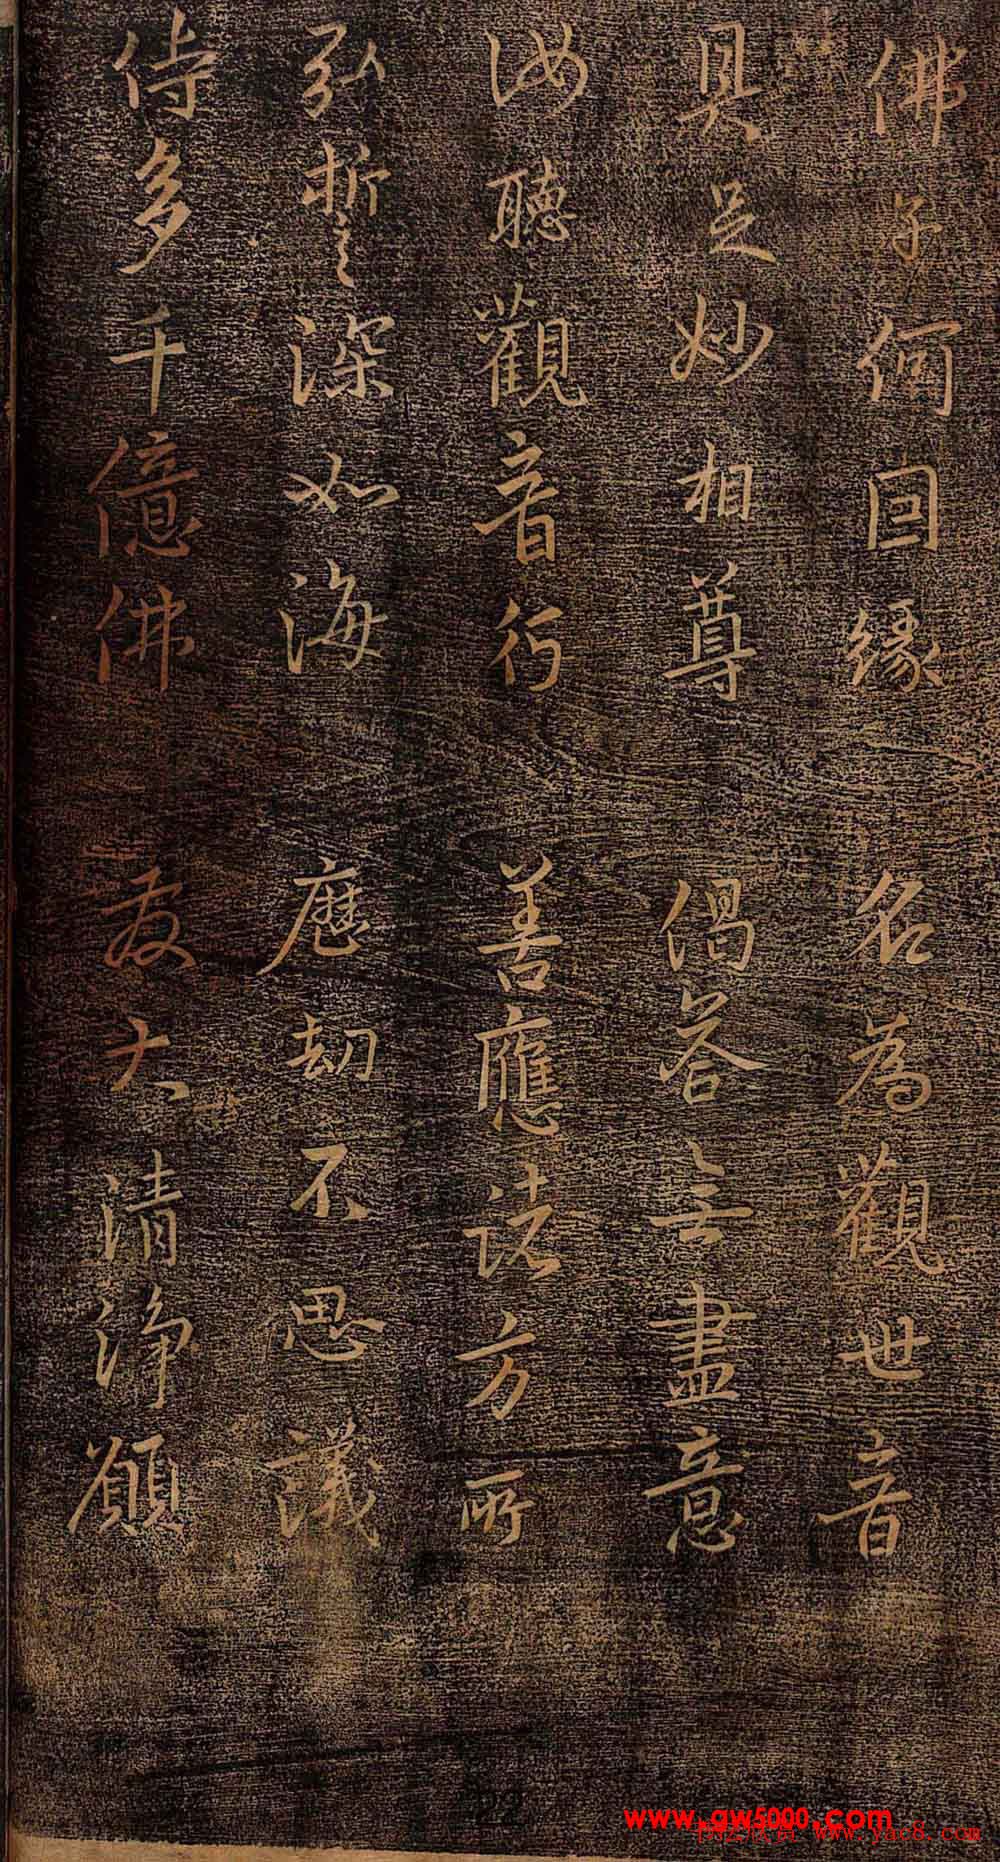 佛子何因緣 名為觀世音
具足妙相尊 偈答無盡意
汝聽觀音行 善應諸方所
弘誓深如海 歷劫不思議
侍多千億佛 發大清淨願
22
www.gw5000.com
www.yac8.com